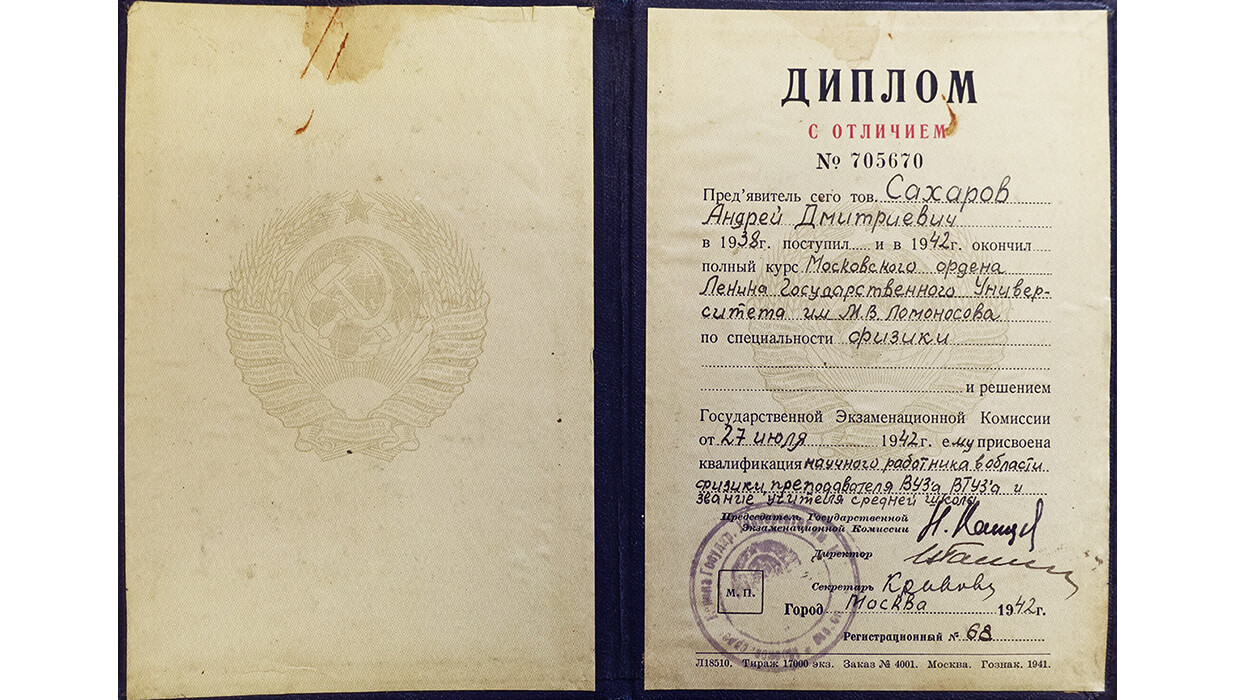 ДИПЛОМ
С ОТЛИЧИЕМ
№ 705670
Пред'явитель сего тов. Сахаров
Андрей Дмитриевич
в 1938г. поступил и в 1942г. окончил
полный курс Московского ордена
Ленина Государственного Универ-
ситета им М.В. Ломоносова
по специальности физики
и решением
Государственной Экзаменационной Комиссии
от 27 июля 1942г. ему присвоена
квалификация научного работника в области
физики, преподавателя ВУЗ'а ВТУЗ'а и
звание учителя средней школы
Председатель Государственной
Экзаменационной Комиссии
Директор
Секретарь
М. П.
Город Москва 1942г.
Регистрационный № 68
Л18510. Тираж 17000 экз. Заказ № 4001. Москва. Гознак. 1941.